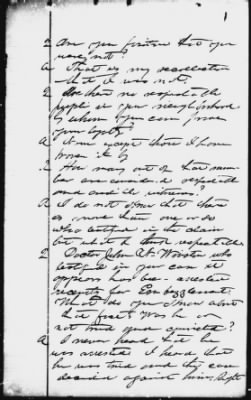 1
Q Are you positive that you
were not?
A That is my recollection
that I was not.
Q Are there no respectable
people in your neighborhood
by whom you can prove
your loyalty?
A None except those I have
proven it by
Q How many out of that number
are considered respectable
and credible witnesses?
A I do not know that there
is more than one or so
who testified in the claim
but what I think respectable.
Q Doctor John W. who
testified in your case it
appears has been arrested
recently for Embezzlement.
What do you know about
that fact? Was he or
not and your ?
A I never heard that he
was arrested. I heard that
he was tried and they
decided against him.